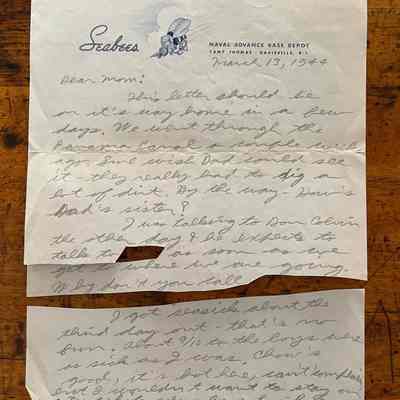 Seabees
NAVAL ADVANCE BASE DEPOT
CAMP THOMAS - DAVISVILLE, R.I.
March 13, 1944
Dear Mom:
This letter should be
on it's way home in a few
days. We went through the
Panama Canal a couple
ago. Sure wish Dad could see
it - they really had to dig a
lot of dirt. By the way - How's
Dad's sister?
I was talking to Don
the other day & he expects to
talk to as soon as we
get to where we are going.
Why don't you call
I got seasick about the
third day out - that's no
fun. About 9/10 of the boys were
as sick as I was. Chow's
good, it's hot here, can't complain
but I wouldn't want to stay on